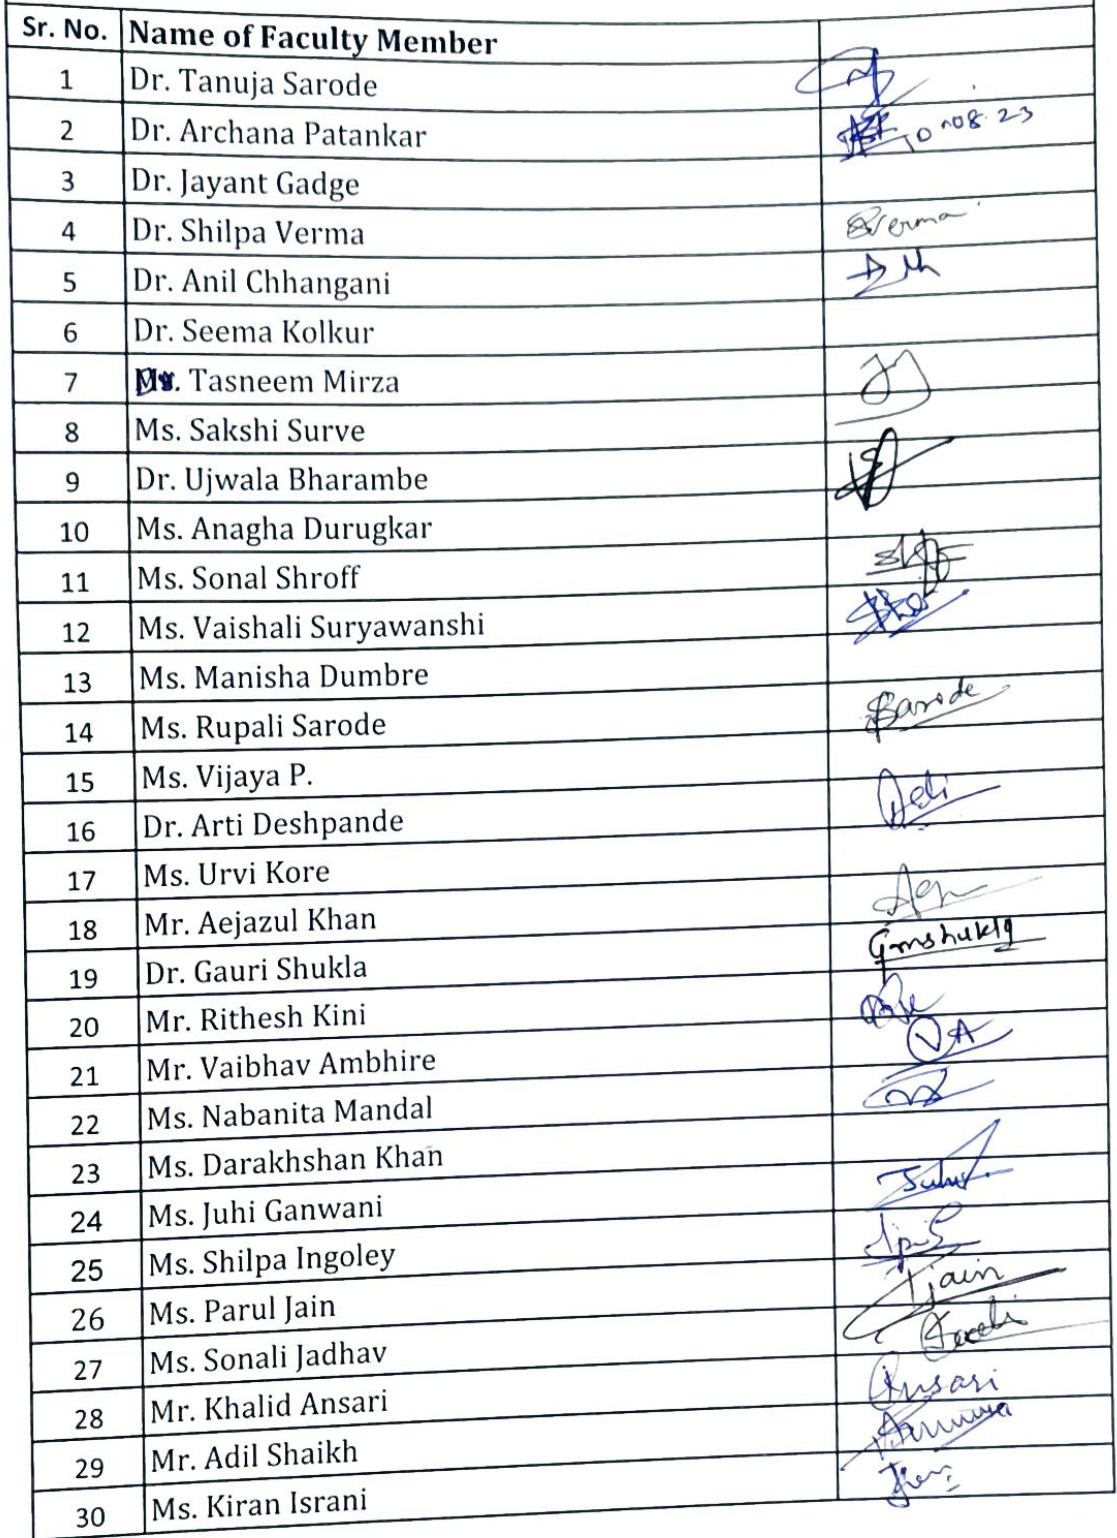 Sr. No. Name of Faculty Member
1 Dr. Tanuja Sarode
2 Dr. Archana Patankar 10.08.23
3 Dr. Jayant Gadge
4 Dr. Shilpa Verma SVerma
5 Dr. Anil Chhangani
6 Dr. Seema Kolkur
7 Dr. Tasneem Mirza
8 Ms. Sakshi Surve
9 Dr. Ujwala Bharambe
10 Ms. Anagha Durugkar
11 Ms. Sonal Shroff
12 Ms. Vaishali Suryawanshi
13 Ms. Manisha Dumbre
14 Ms. Rupali Sarode Sarode
15 Ms. Vijaya P.
16 Dr. Arti Deshpande
17 Ms. Urvi Kore
18 Mr. Aejazul Khan
19 Dr. Gauri Shukla Gmshukla
20 Mr. Rithesh Kini
21 Mr. Vaibhav Ambhire VA
22 Ms. Nabanita Mandal
23 Ms. Darakhshan Khan
24 Ms. Juhi Ganwani
25 Ms. Shilpa Ingoley
26 Ms. Parul Jain Pjain
27 Ms. Sonali Jadhav
28 Mr. Khalid Ansari Ansari
29 Mr. Adil Shaikh
30 Ms. Kiran Israni